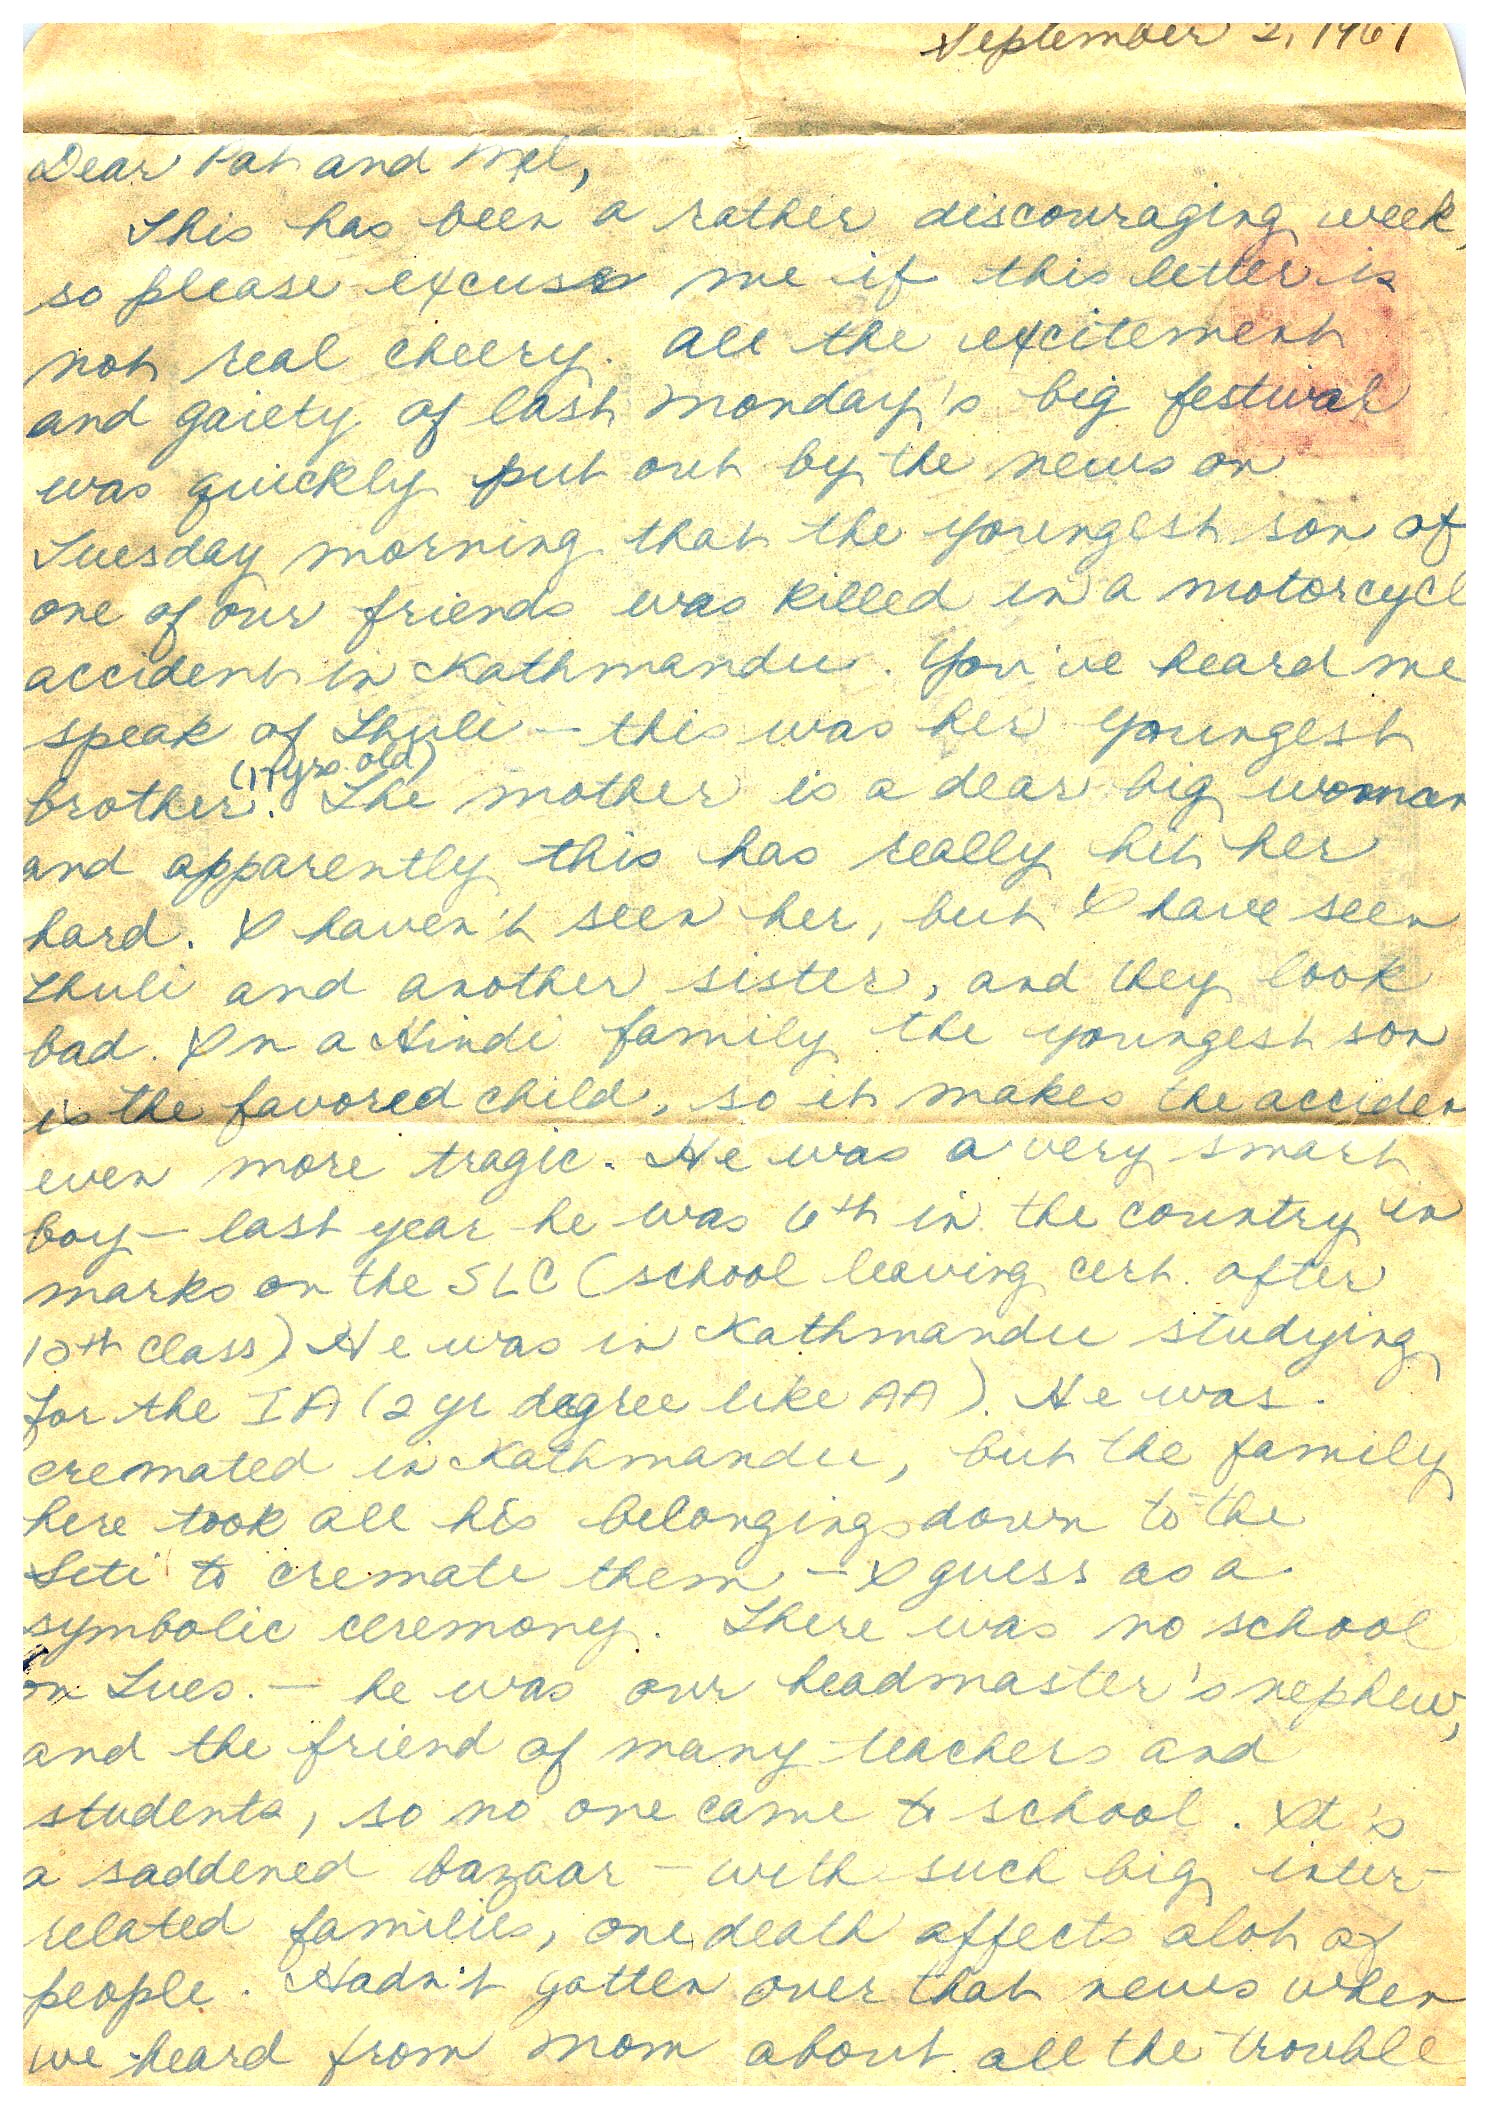 September 2, 1967
Dear Pat and Mel,
This has been a rather discouraging week,
so please excuse me if this letter is
not real cheery. All the excitement
and gaiety of last Monday's big festival
was quickly put out by the news on
Tuesday morning that the youngest son of
one of our friends was killed in a motorcycl
accident in Kathmandu. You've heard me
speak of Thuli — this was her youngest
(17 yrs old)
brother. The mother is a dear big woman
and apparently this has really hit her
hard. I haven't seen her, but I have seen
Thuli and another sister, and they look
bad. In a Hindi family the youngest son
is the favored child, so it makes the acciden
even more tragic. He was a very smart
boy — last year he was 6th in the country in
marks on the SLC (school leaving cert. after
10th class). He was in Kathmandu studying
for the IA (2 yr degree like AA). He was
cremated in Kathmandu, but the family
here took all his belongings down to the
Seti to cremate them — I guess as a
symbolic ceremony. There was no school
on Tues. — he was our headmaster's nephew,
and the friend of many teachers and
students, so no one came to school. It's
a saddened bazaar — with such big inter-
related families, one death affects alot of
people. Hadn't gotten over that news when
we heard from Mom about all the trouble